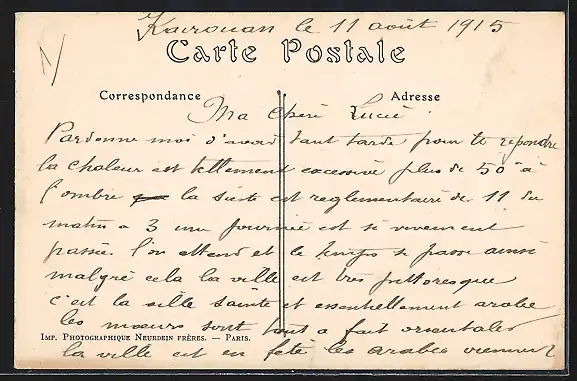 Kairouan le 11 août 1915
Carte Postale
Correspondance
Adresse
Ma chère Lucie
Pardonne moi d'avoir tant tardé pour te repondre
la chaleur est tellement excessive plus de 50° à
l'ombre la sieste est reglementaire de 11 du
matin a 3 une journée est si vivement
passée. l'on attend et le temps se passe ainsi
malgré cela la ville est très pittoresque
c'est la ville sainte et essentiellement arabe
les mœurs sont tout a fait orientales
Imp. Photographique Neurdein Frères. — Paris.
la ville est en fête les arabes viennent